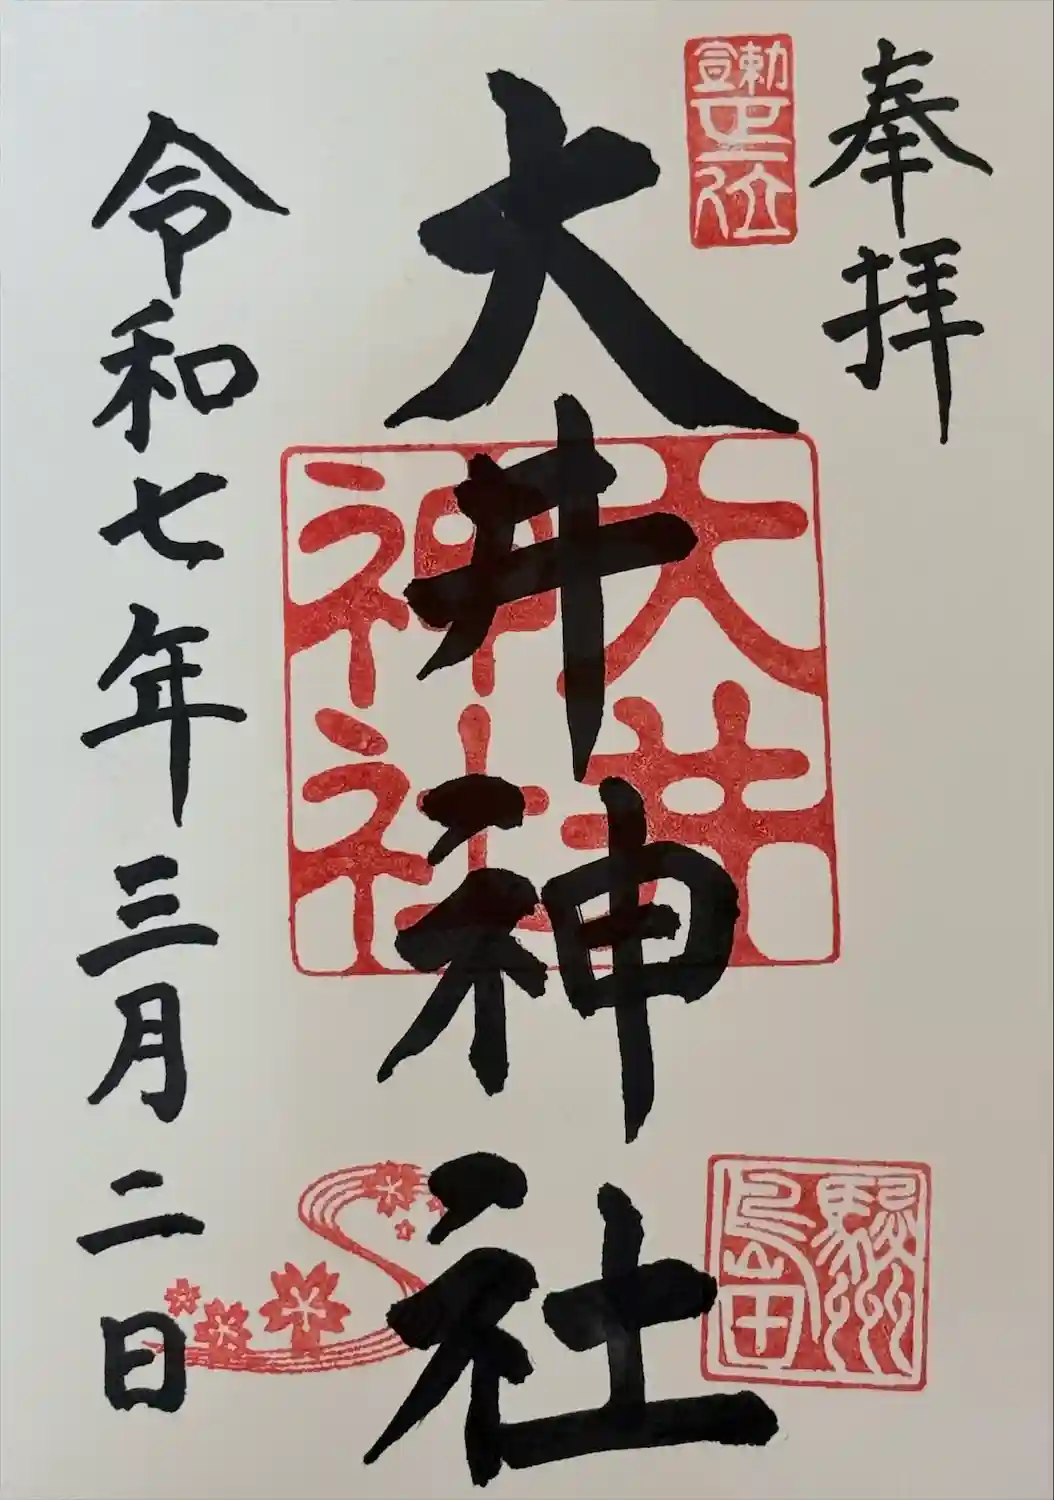 奉拝
勅宣正一位
大井神社
大井
神社
駿州
島田
令和七年三月二日